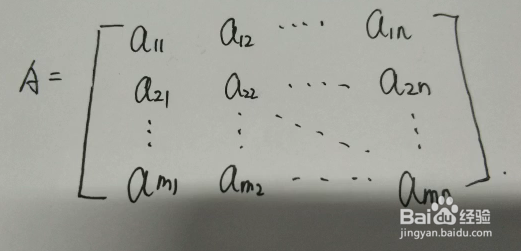 a₁₁ a₁₂ ····· a₁ₙ
A = a₂₁ a₂₂ ····· a₂ₙ
⋮ ⋮ ⋱ ⋮
aₘ₁ aₘ₂ ····· aₘₙ
Baidu经验
jingyan.baidu.com